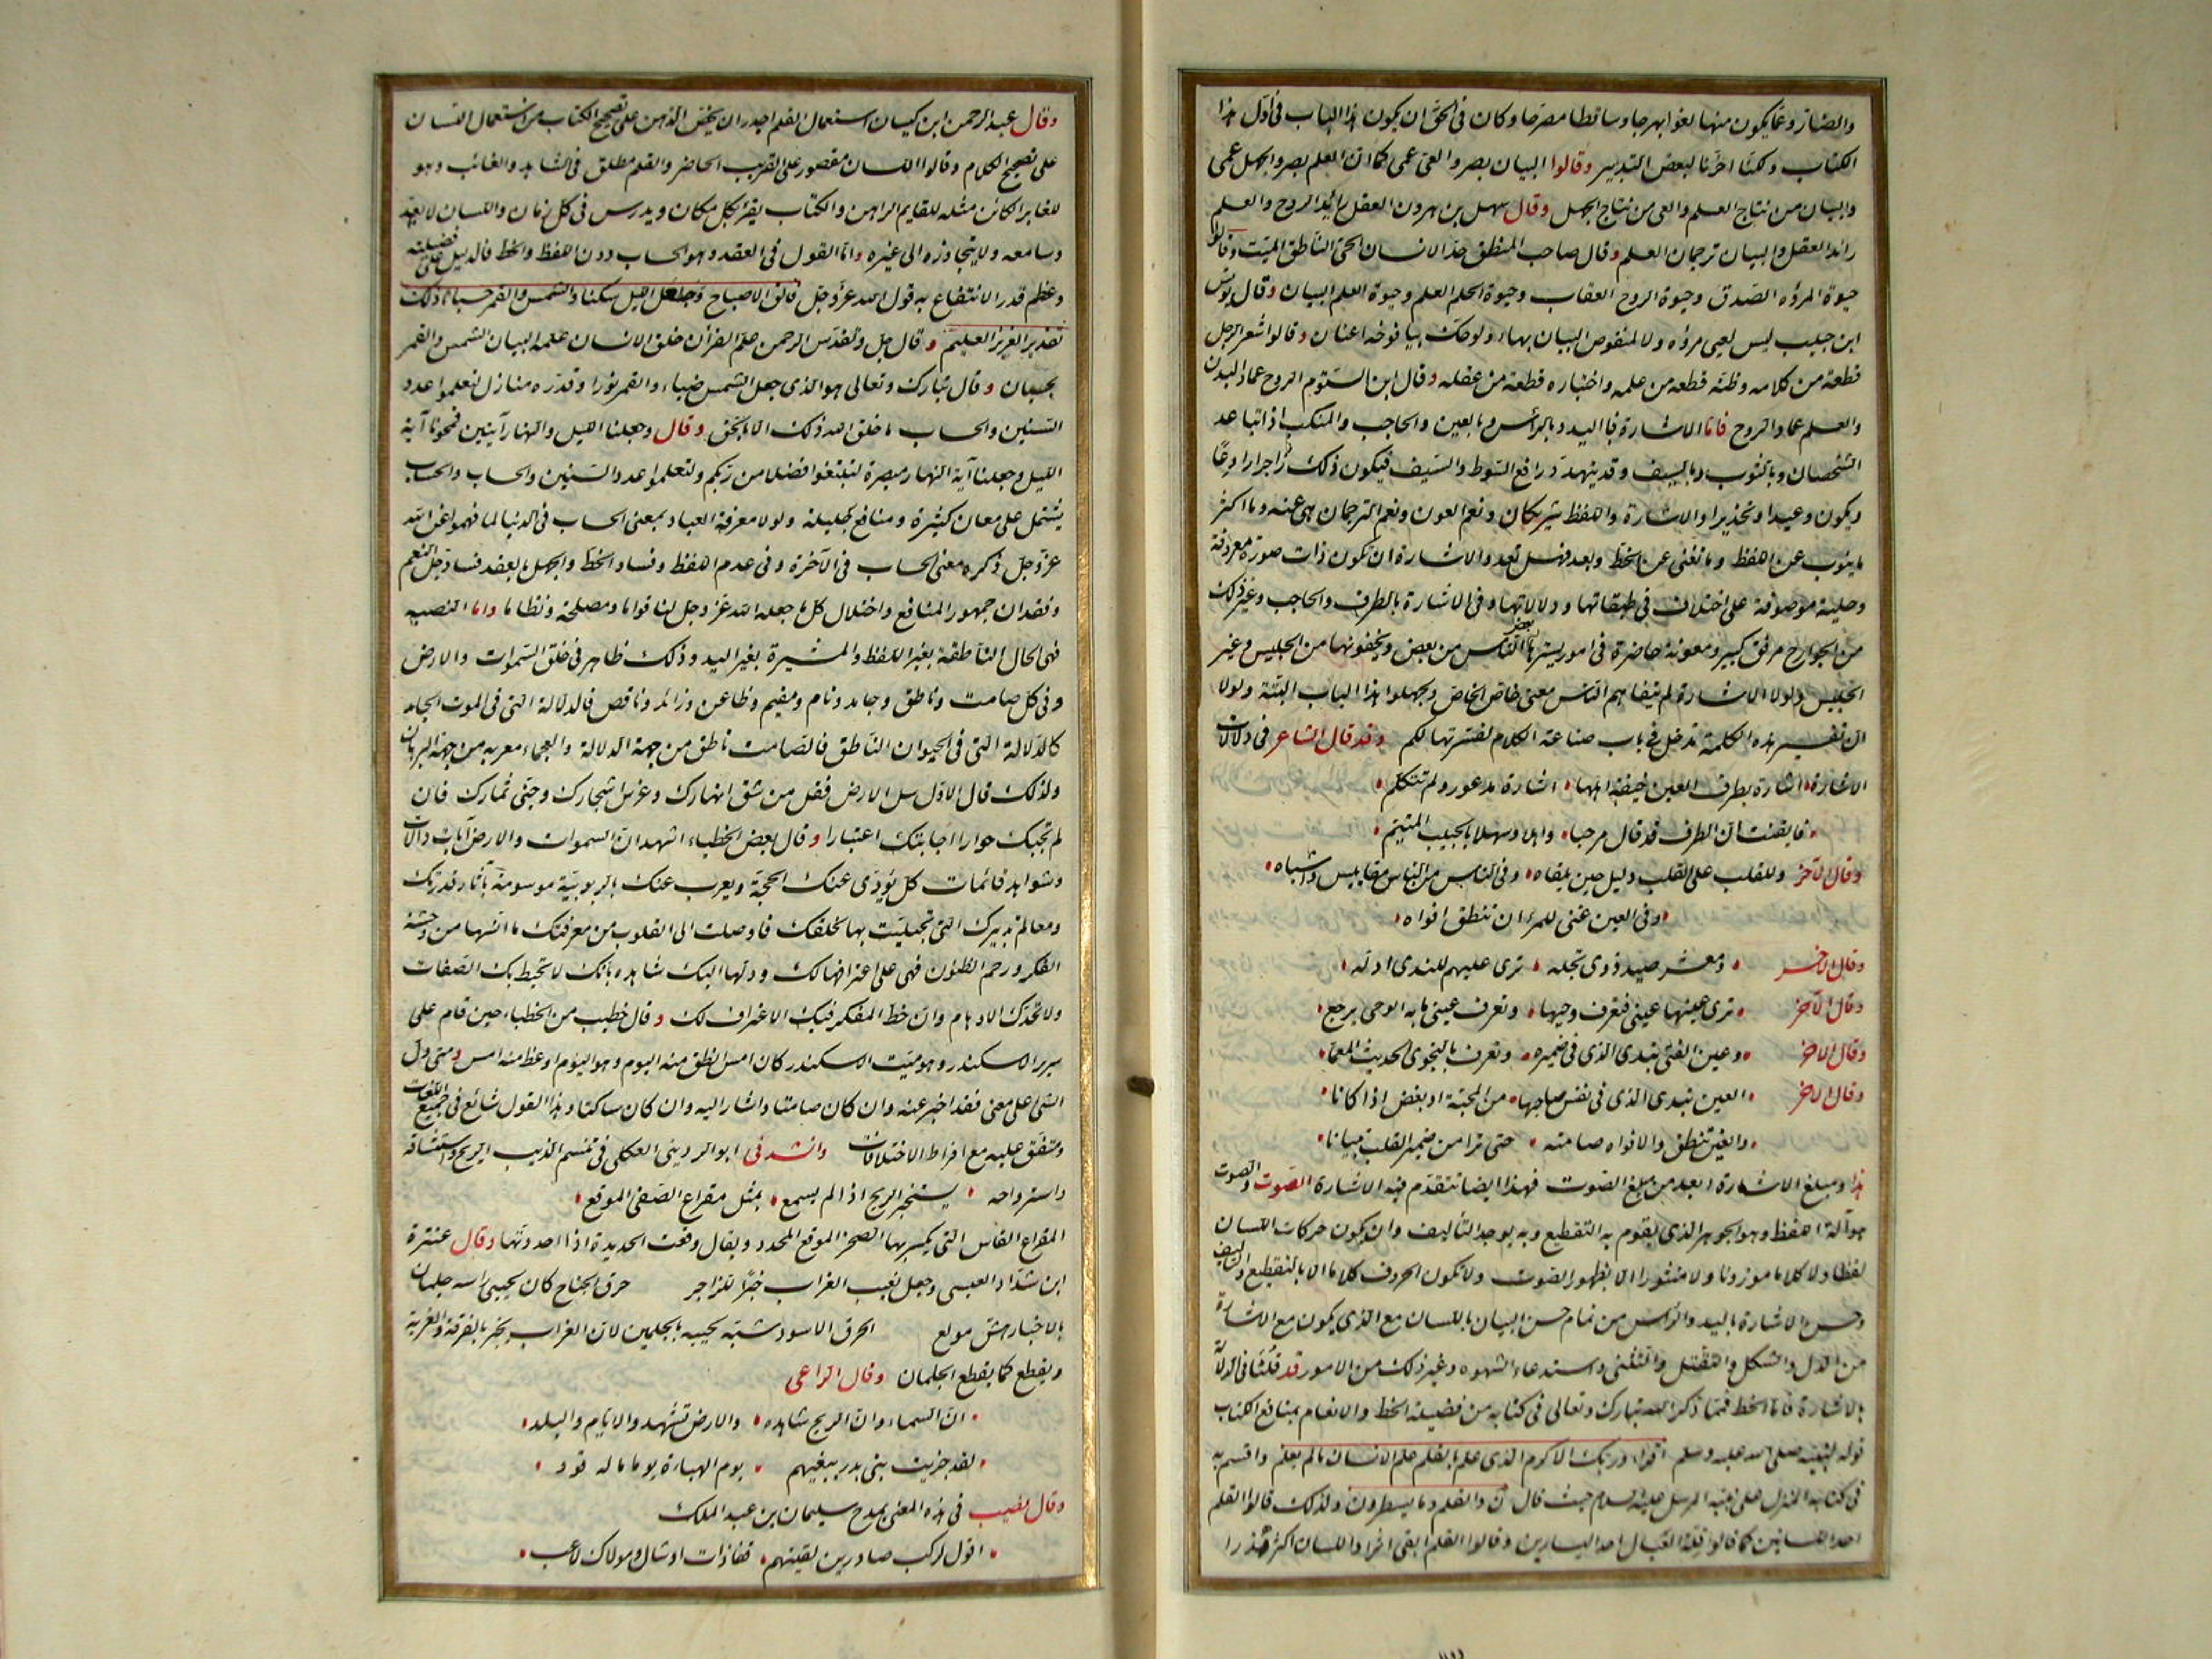 والضار وعما يكون منها لغوا بهرجا وساقطا مطرحا وكان في الحق ان يكون هذا الباب في اول هذا
الكتاب ولكنا اخرنا لبعض التدبير وقالوا البيان بصر والعى عمى كما ان العلم بصر والجهل عمى
والبيان من نتاج العلم والعى من نتاج الجهل وقال سهل بن هرون العقل رائد الروح والعلم
رائد العقل والبيان ترجمان العلم وقال صاحب المنطق حد الانسان الحى الناطق الميت وقالوا
حيوة المروه الصدق وحيوة الروح العفاف وحيوة الحلم العلم وحيوة العلم البيان وقال يونس
ابن حبيب ليس لعيى مروه ولا لمنقوص البيان بهاء ولو حك بيافوخه اعنان وقالوا شعر الرجل
قطعة من كلامه وظنه قطعة من علمه واختياره قطعة من عقله وقال ابن التوم الروح عماد البدن
والعلم عماد الروح فاما الاشارة فبا اليد وبالراس وبالعين والحاجب والمنكب اذا تباعد
الشخصان وبالثوب وبالسيف وقد يتهدد رافع السوط والسيف فيكون ذلك زاجرا رادعا
ويكون وعيدا وتحذيرا والاشارة واللفظ شريكان ونعم العون ونعم الترجمان هي عنه وما اكثر
ما ينوب عن اللفظ وما تغنى عن الخط وبعد فهل تعدو الاشارة ان تكون ذات صورة معروفة
وحلية موصوفة على اختلاف في طبقاتها ودلالاتها وفي الاشارة بالطرف والحاجب وغير ذلك
من الجوارح مرفق كبير ومعونة حاضرة في امور يسترها بعض الناس من بعض ويخفونها من الجليس وغير
الجليس ولولا الاشارة لم يتفاهم الناس معنى خاص الخاص ولجهلوا هذا الباب البتة ولولا
ان تفسير هذه الكلمة تدخل في باب صناعة الكلام لفسرتها لكم وقد قال الشاعر في دلالات
الاشارة اشارة بطرف العين خيفة اهلها اشارة مذعور ولم تتكلم
فايقنت ان الطرف قد قال مرحبا واهلا وسهلا بالحبيب المتيم
وقال الآخر وللقلب على القلب دليل حين يلقاه وفي الناس من الناس مقاييس واشباه
وفي العين غنى للمرء ان تنطق افواه
وقال الآخر ومعشر صيد ذوى تجله ترى عليهم للندى ادله
وقال الآخر ترى عينها عينى فتعرف وحيها وتعرف عينى ما به الوحى يرجع
وقال الآخر وعين الفتى تبدى الذي في ضميره وتعرف بالنجوى الحديث المعمى
وقال الآخر العين تبدى الذي في نفس صاحبها من المحبة او بغض اذا كانا
والعين تنطق والافواه صامته حتى ترا من ضمير القلب تبيانا
هذا ومبلغ الاشارة ابعد من مبلغ الصوت فهذا ايضا تتقدم فيه الاشارة الصوت والصوت
هو آلة اللفظ وهو الجوهر الذي يقوم به التقطيع وبه يوجد التأليف ولن يكون حركات اللسان
لفظا ولا كلاما موزونا ولا منثورا الا بظهور الصوت ولا تكون الحروف كلاما الا بالتقطيع والتأليف
وحسن الاشارة باليد والراس من تمام حسن البيان باللسان مع الذي يكون مع الاشارة
من الدل والشكل والتقتل والتثنى واستدعاء الشهوه وغير ذلك من الامور قد قلنا في الدلالة
بالاشارة فاما الخط فمما ذكر الله تبارك وتعالى في كتابه من فضيلة الخط والانعام بمنافع الكتاب
قوله لنبيه صلى الله عليه وسلم اقرا وربك الاكرم الذي علم بالقلم علم الانسان مالم يعلم واقسم به
في كتابه المنزل على نبيه المرسل عليه السلام حيث قال ن والقلم وما يسطرون ولذلك قالوا القلم
احد اللسانين كما قالوا قلة العيال احد اليسارين وقالوا القلم ابقى اثرا واللسان اكثر هذرا
وقال عبد الرحمن ابن كيسان استعمال القلم اجدر ان يحض الذهن على تصحيح الكتاب من استعمال اللسان
على تصحيح الكلام وقالوا اللسان مقصور على القريب الحاضر والقلم مطلق في الشاهد والغائب وهو
للغابر الكائن مثله للقايم الراهن والكتاب يقرأ بكل مكان ويدرس في كل زمان واللسان لا يعدو
وسامعه ولا يتجاوزه الى غيره واما القول في العقد وهو الحساب دون اللفظ والخط فالدليل على فضيلته
وعظم قدر الانتفاع به قول الله عز وجل فالق الاصباح وجاعل الليل سكنا والشمس والقمر حسبانا ذلك
تقدير العزيز العليم وقال جل وتقدس الرحمن علم القرآن خلق الانسان علمه البيان الشمس والقمر
بحسبان وقال تبارك وتعالى هو الذي جعل الشمس ضياء والقمر نورا وقدره منازل لتعلموا عدد
السنين والحساب ما خلق الله ذلك الا بالحق وقال وجعلنا الليل والنهار آيتين فمحونا آية
الليل وجعلنا آية النهار مبصرة لتبتغوا فضلا من ربكم ولتعلموا عدد السنين والحساب والحساب
يشتمل على معان كثيرة ومنافع جليلة ولولا معرفة العباد بمعنى الحساب في الدنيا لما فهموا عن الله
عز وجل ذكره معنى الحساب في الآخرة وفي عدم اللفظ وفساد الخط والجهل بالعقد فساد جل النعم
وفقدان جمهور المنافع واختلال كل ما جعله الله عز وجل لنا قواما ومصلحة ونظاما واما النصبه
فهى الحال الناطقة بغير اللفظ والمشيرة بغير اليد وذلك ظاهر في خلق السموات والارض
وفي كل صامت وناطق وجامد ونام ومقيم وظاعن وزائد وناقص فالدلالة التى في الموات الجامد
كالدلالة التى في الحيوان الناطق فالصامت ناطق من جهة الدلالة والعجماء معربه من جهة البرهان
ولذلك قال الاول سل الارض فقل من شق انهارك وغرس اشجارك وجنى ثمارك فان
لم تجبك حوارا اجابتك اعتبارا وقال بعض الخطباء اشهد ان السموات والارض آيات دالات
وشواهد قائمات كل يؤدى عنك الحجة ويعرب عنك بالربوبية موسومة بآثار قدرتك
ومعالم تدبيرك التى تجليت بها لخلقك فاوصلت الى القلوب من معرفتك ما انسها من وحشة
الفكر ورجم الظنون فهى على اعترافها لك ودلها اليك شاهده بانك لا تحيط بك الصفات
ولا تحدك الاوهام وان حظ المفكر فيك الاعتراف لك وقال خطيب من الخطباء حين قام على
سرير الاسكندر وهو ميت الاسكندر كان امس انطق منه اليوم وهو اليوم اوعظ منه امس ومتى دل
الشى على معنى فقد اخبر عنه وان كان صامتا واشار اليه وان كان ساكتا وهذا القول شائع في جميع اللغات
ومتفق عليه مع افراط الاختلافات وانشدنى ابو الردينى العكلى في تنسم الذيب الريح واستنشاقه
واسترواحه يستخبر الريح اذا لم يسمع بمثل مقراع الصفى الموقع
المقراع الفاس التى يكسر بها الصخر الموقع المحدد ويقال وقعت الحديدة اذا احددتها وقال عنترة
ابن شداد العبسى وجعل نعيب الغراب خبرا للزاجر حرق الجناح كان لحيى راسه جلمان
بالاخبار هش مولع الحرق الاسود شبه لحييه بالجلمين لان الغراب يخبر بالفرقة والغربة
ويقطع كما يقطع الجلمان وقال الراعى
ان السماء وان الريح شاهده والارض تشهد والايام والبلد
لقد جزيت بنى بدر ببغيهم يوم الهباءة يوما ما له قود
وقال نصيب في هذه المعنى يمدح سليمان بن عبد الملك
اقول لركب صادرين لقيتهم قفا ذات اوشال ومولاك لاعب